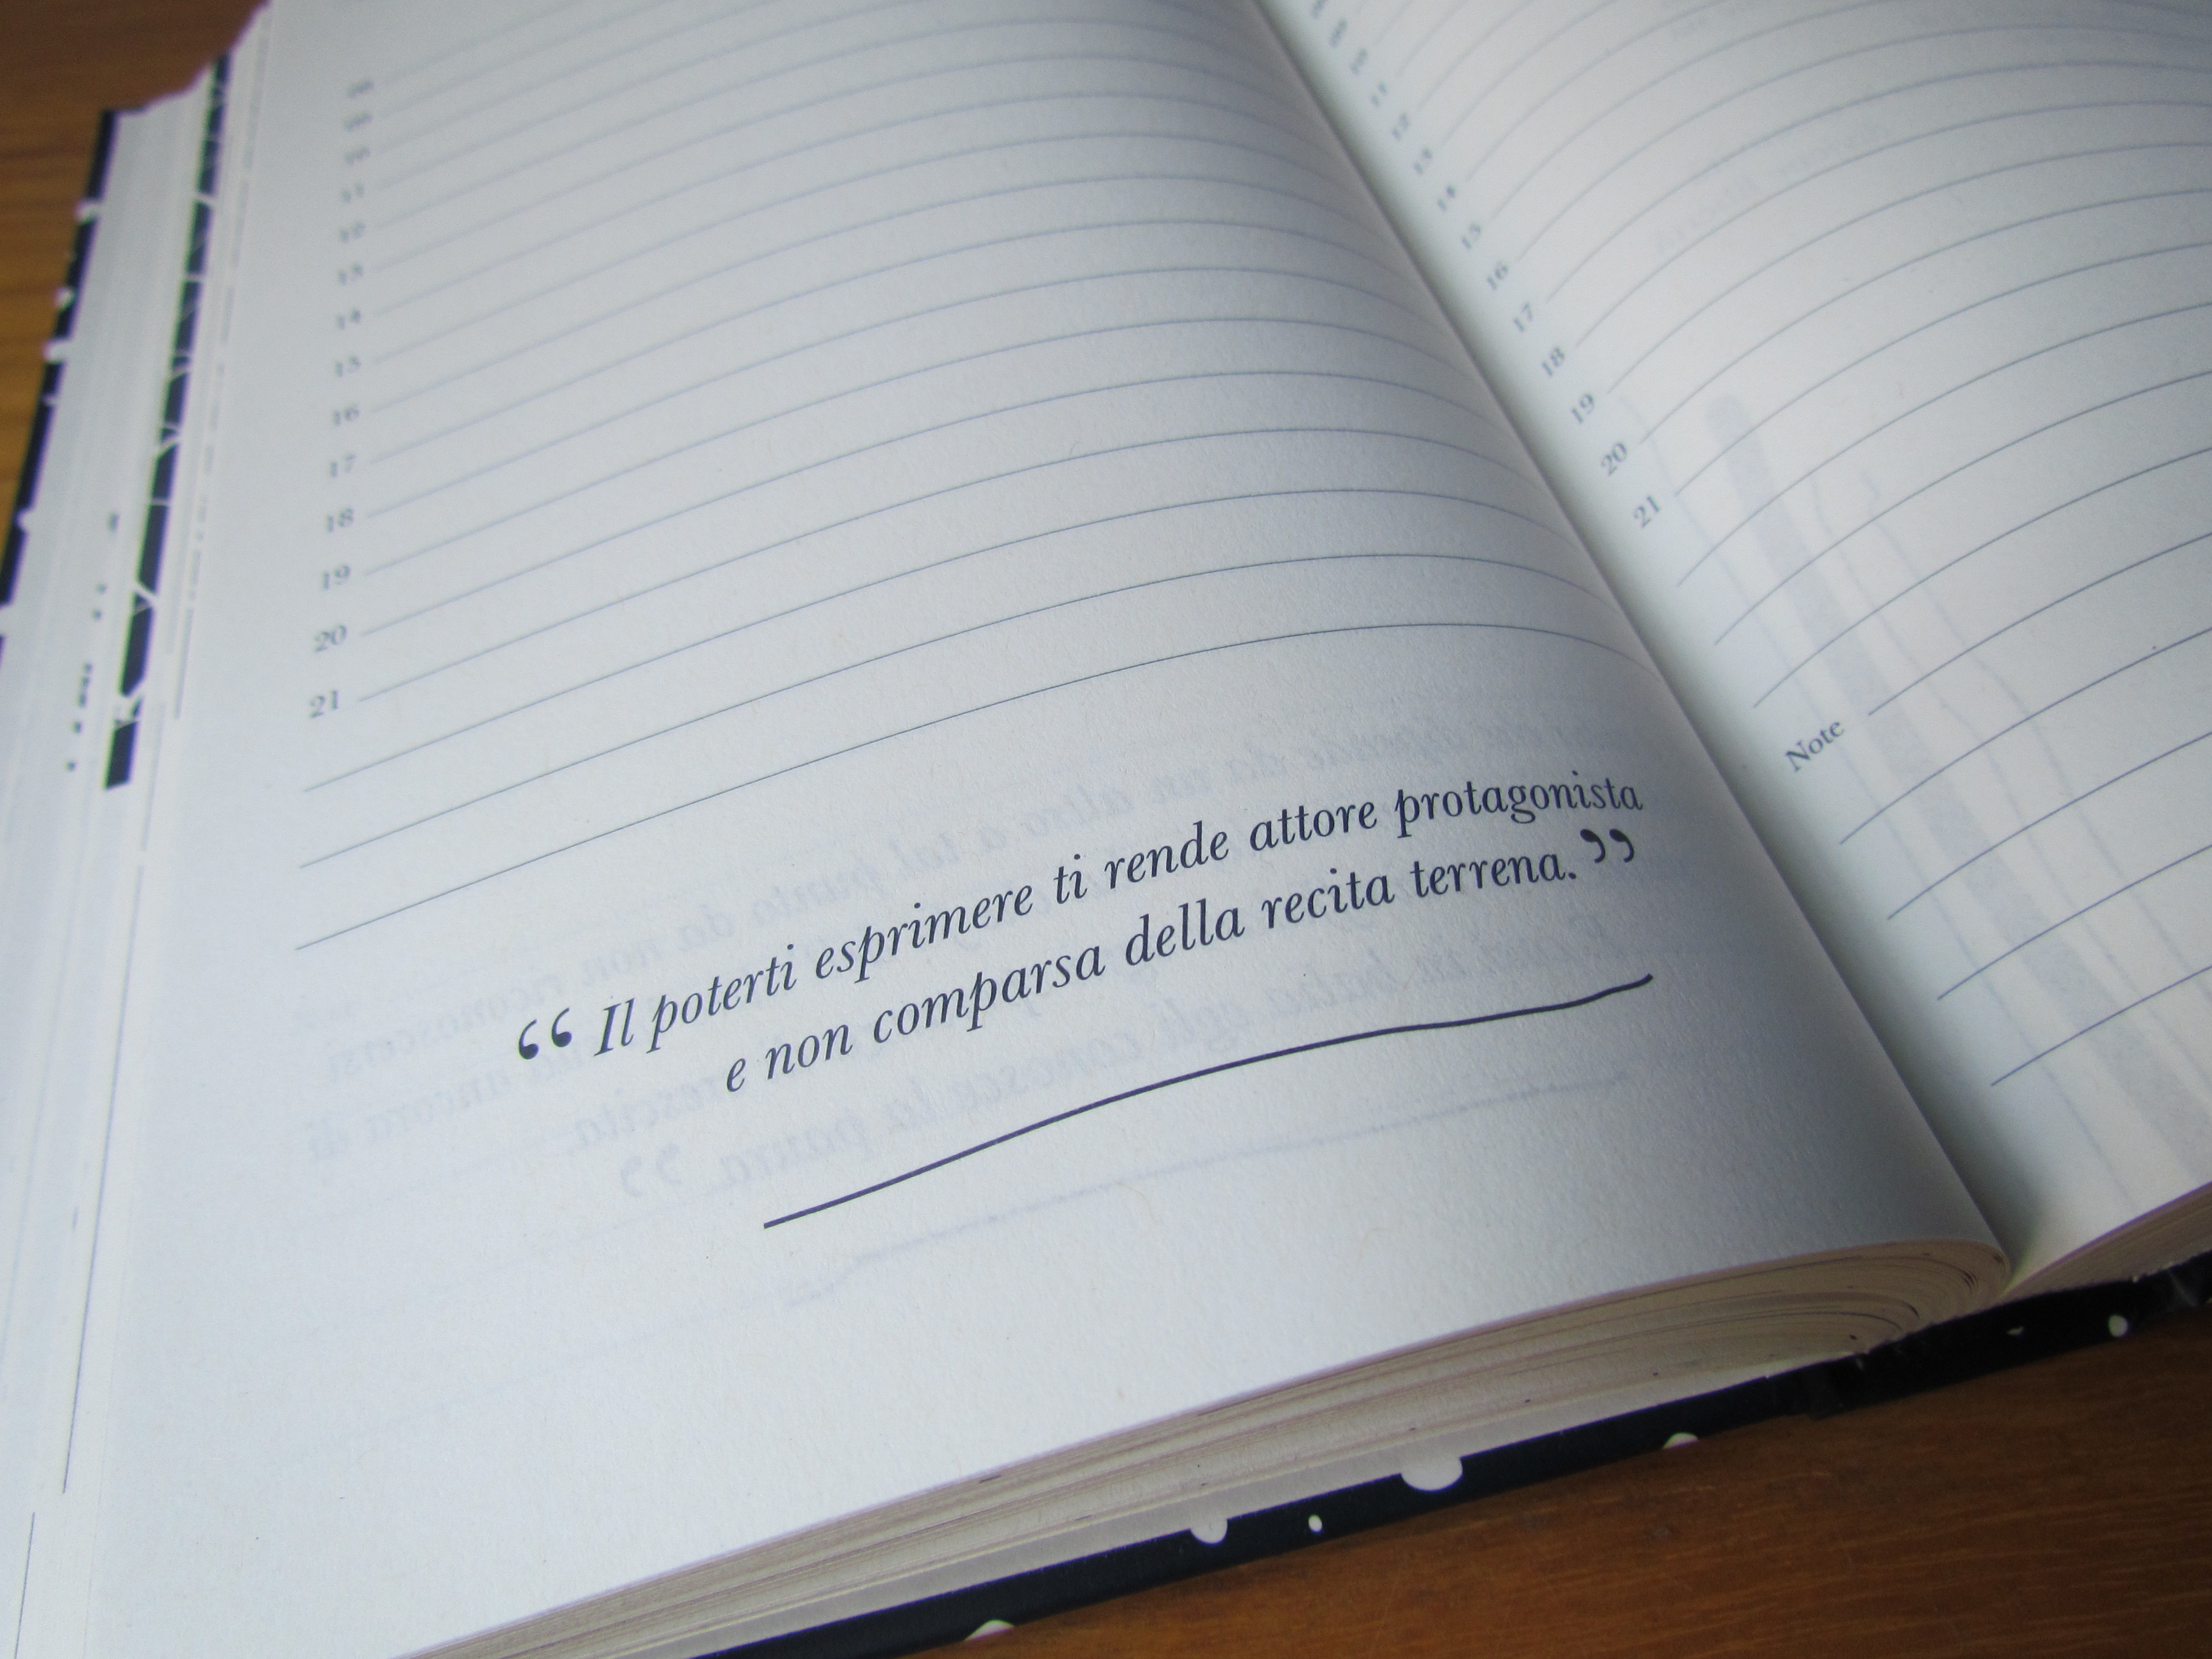 11
12
13
14
15
16
17
18
19
20
21
“ Il poterti esprimere ti rende attore protagonista
e non comparsa della recita terrena. ”
11
12
13
14
15
16
17
18
19
20
21
Note